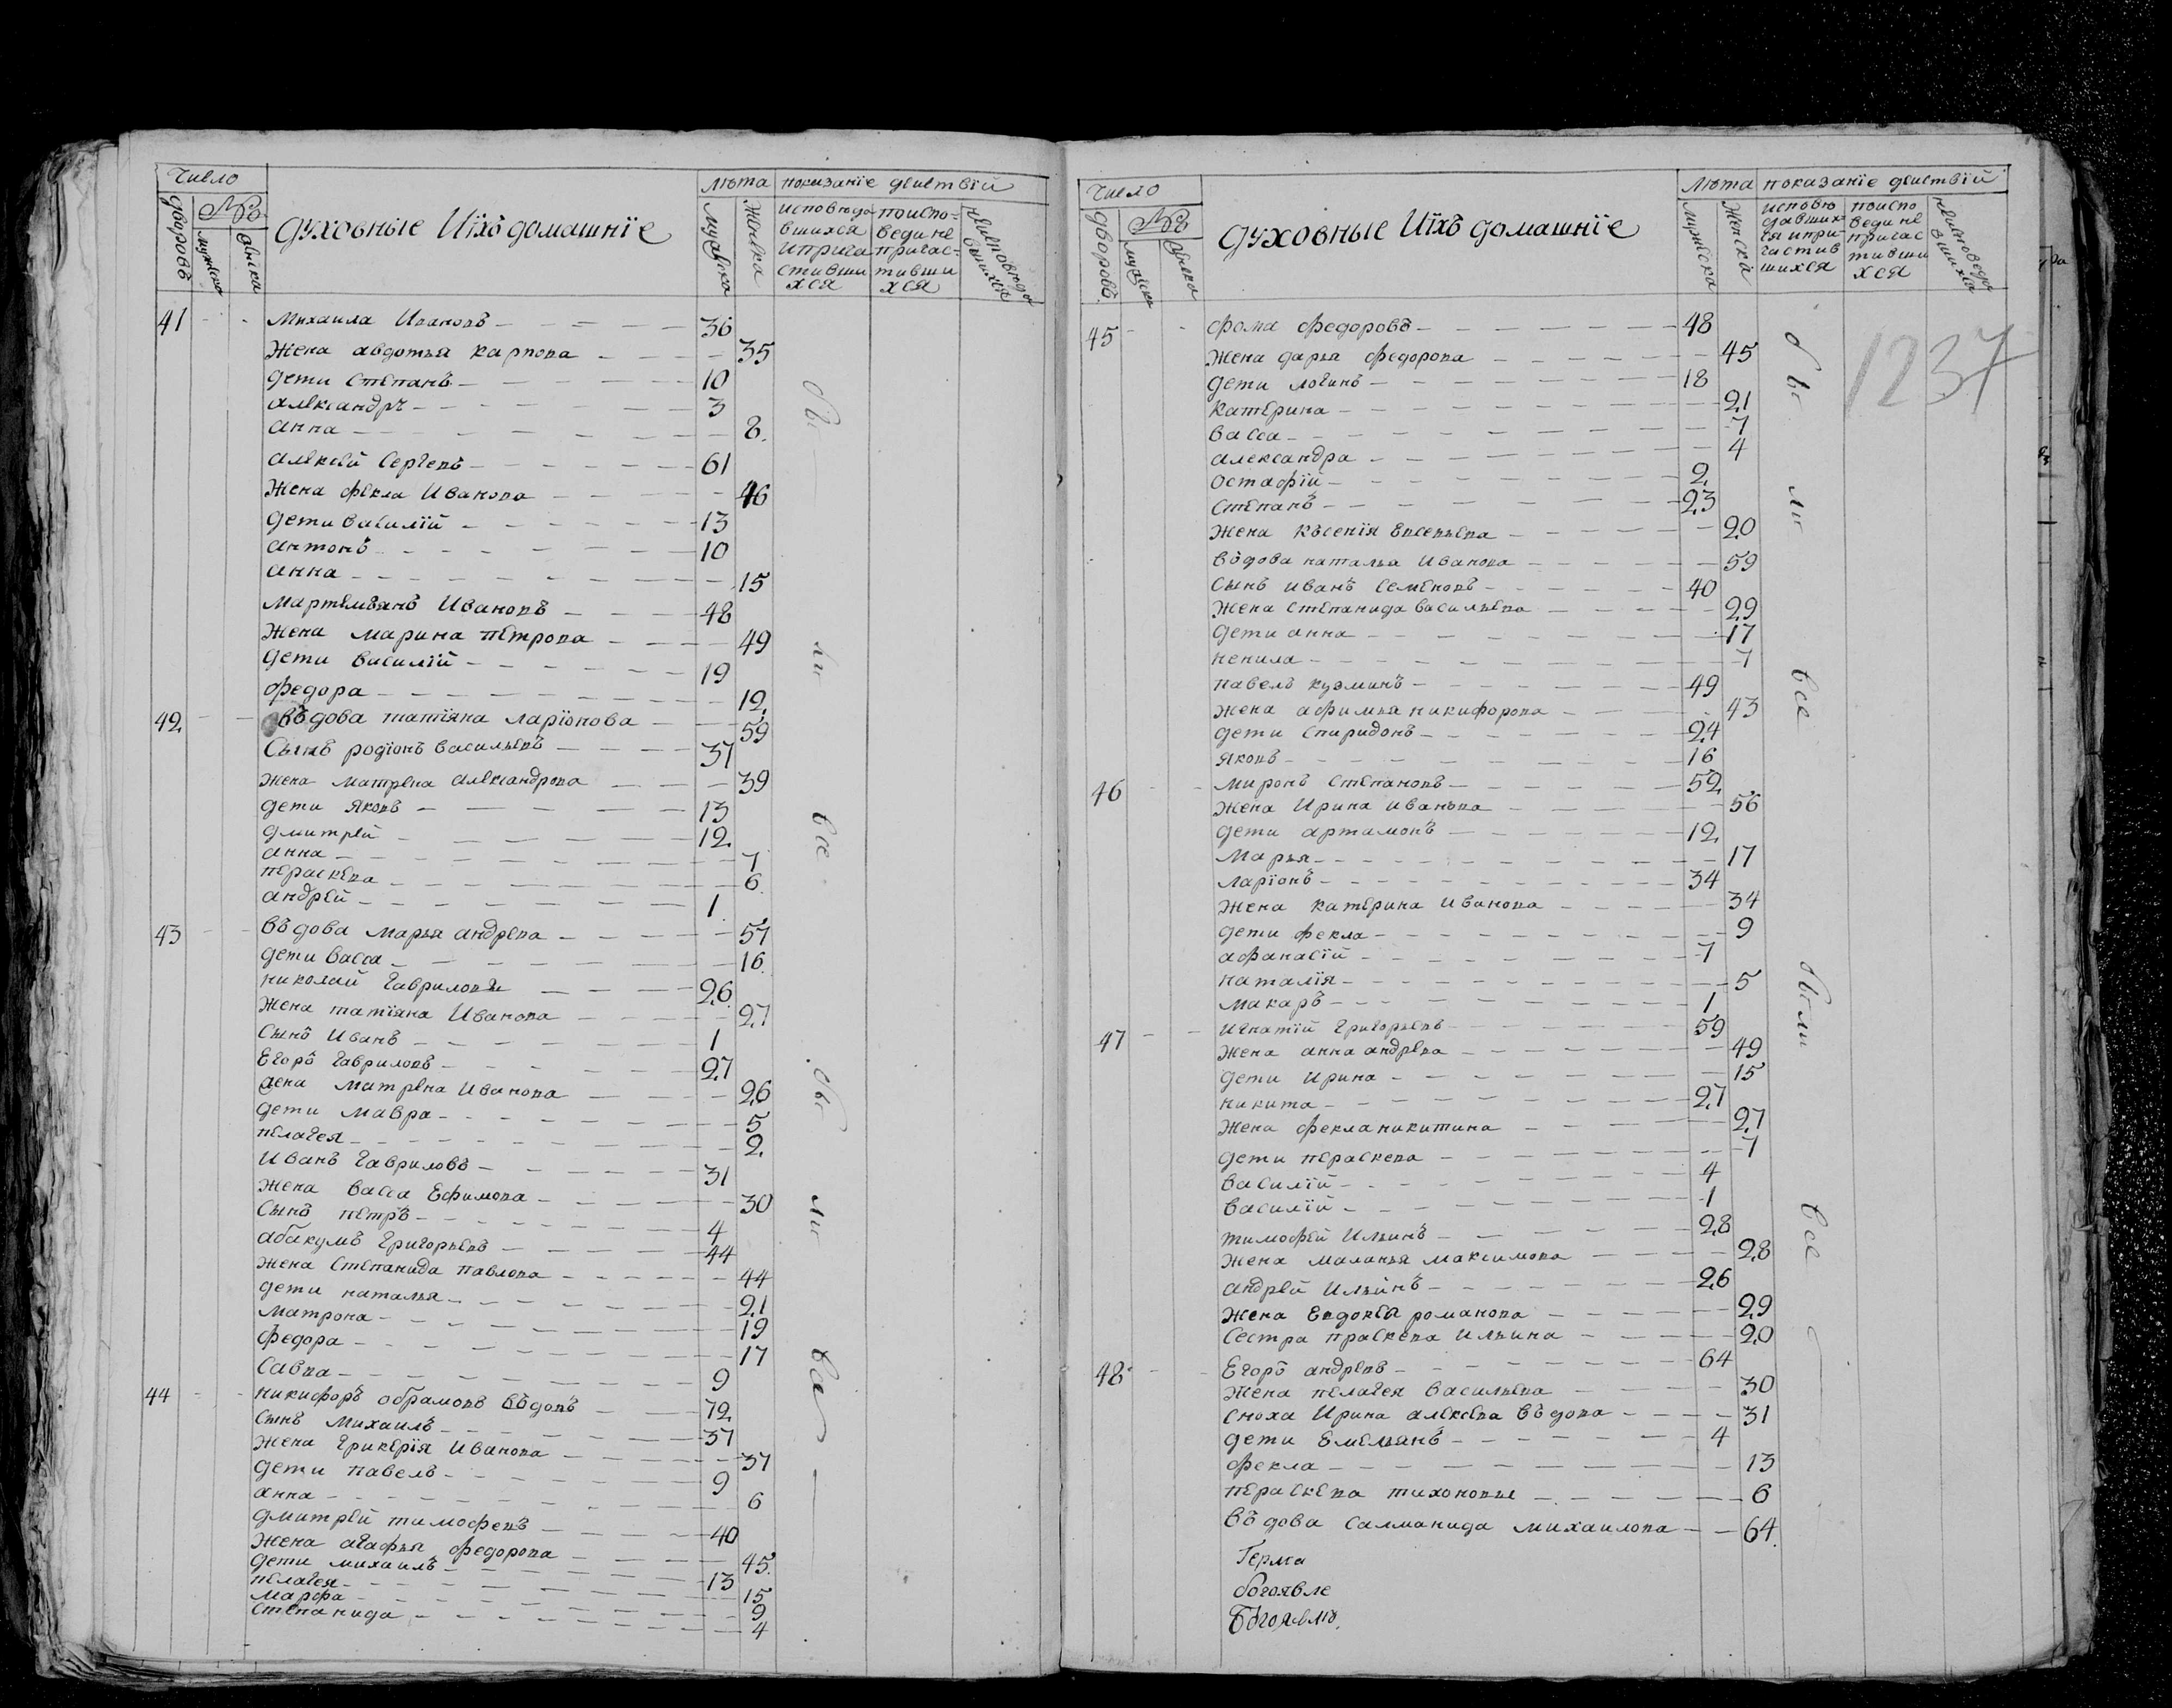 Число
Лѣта показанїе дѣиствїй
дворовъ
№
мужска
женска
духовныіе Иїхъ домашнїе
мужска
женска
исповѣдо
вшихся
иприча
стивши
хся
поиспо=
веди не
причас=
тивши
хся
41 Михаила Ивановъ 36
Жена авдотья карпова 35
дети степанъ 10
александръ 3
анна 8
алексѣй Сергевъ 61
Жена фекла Иванова 46
дети василїй 13
антонъ 10
анна 15
мартемьянъ Ивановъ 48
Жена марина петрова 49
дети василїй 19
федора 12
42 въдова татїяна ларїонова 59
Сынъ родїонъ васильевъ 37
жена матрена александрова 39
дети яковъ 13
дмитрей 12
анна 7
пераскева 6
андрей 1
43 въдова марья андрева 57
дети васса 16
николай гаврилов 26
Жена татїяна Иванова 27
Сынъ Иванъ 1
Егоръ гавриловъ 27
жена матрена Иванова 26
дети мавра 5
пелагея 2
Иванъ гавриловъ 31
Жена васса Ефимова 30
Сынъ петръ 4
абакумъ григорьевъ 44
Жена степанида павлова 44
дети наталья 21
матрона 19
федора 17
Савва 9
44 никифоръ обрамовъ въдовъ 72
Сынъ михаилъ 37
Жена грикерїя Иванова 37
дети павелъ 9
анна 6
дмитрей тимофевъ 40
Жена агафья федорова 45
дети михаилъ 13
пелагея 15
марфа 9
степанида 4
бы
ли
все
бы
ли
вся
Число
Лѣта показанїе дѣиствїй
дворовъ
№
мужска
женска
духовные Иїхъ домашнїе
мужска
женска
исповѣ
давших
ся ипри
частив
шихся
поиспо
веди не
причас
тивши
хся
1237
45 фома федоровъ 48
Жена дарья федорова 45
дети логинъ 18
катерина 21
васса 7
александра 4
остафїй 2
степанъ 23
жена късенїя евсевьева 20
въдова наталья Иванова 59
Сынъ иванъ семеновъ 40
жена степанида васильева 29
дети анна 17
ненила 7
павелъ кузминъ 49
жена афимья никифорова 43
дети спиридонъ 24
яковъ 16
46 миронъ степановъ 52
Жена Ирина иванова 56
дети артамонъ 12
марья 17
ларїонъ 34
Жена катерина Иванова 34
дети фекла 9
афанасїй 7
наталїя 5
макаръ 1
47 игнатїй григорьевъ 59
Жена анна андрева 49
дети Ирина 15
никита 27
Жена фекла никитина 27
дети пераскева 7
василїй 4
василїй 1
тимофей Ильинъ 28
Жена маланья максимова 28
андрей Ильинъ 26
Жена Евдокея романова 29
Сестра праскева Ильина 20
48 Егоръ андревъ 64
Жена пелагея васильева 30
сноха Ирина алексева въдова 31
дети Емельянъ 4
фекла 13
пераскева тихоновы 6
въдова Салманида михаилова 64
Герма
богоявле
Богоявлѣ
бы
ли
все
были
все